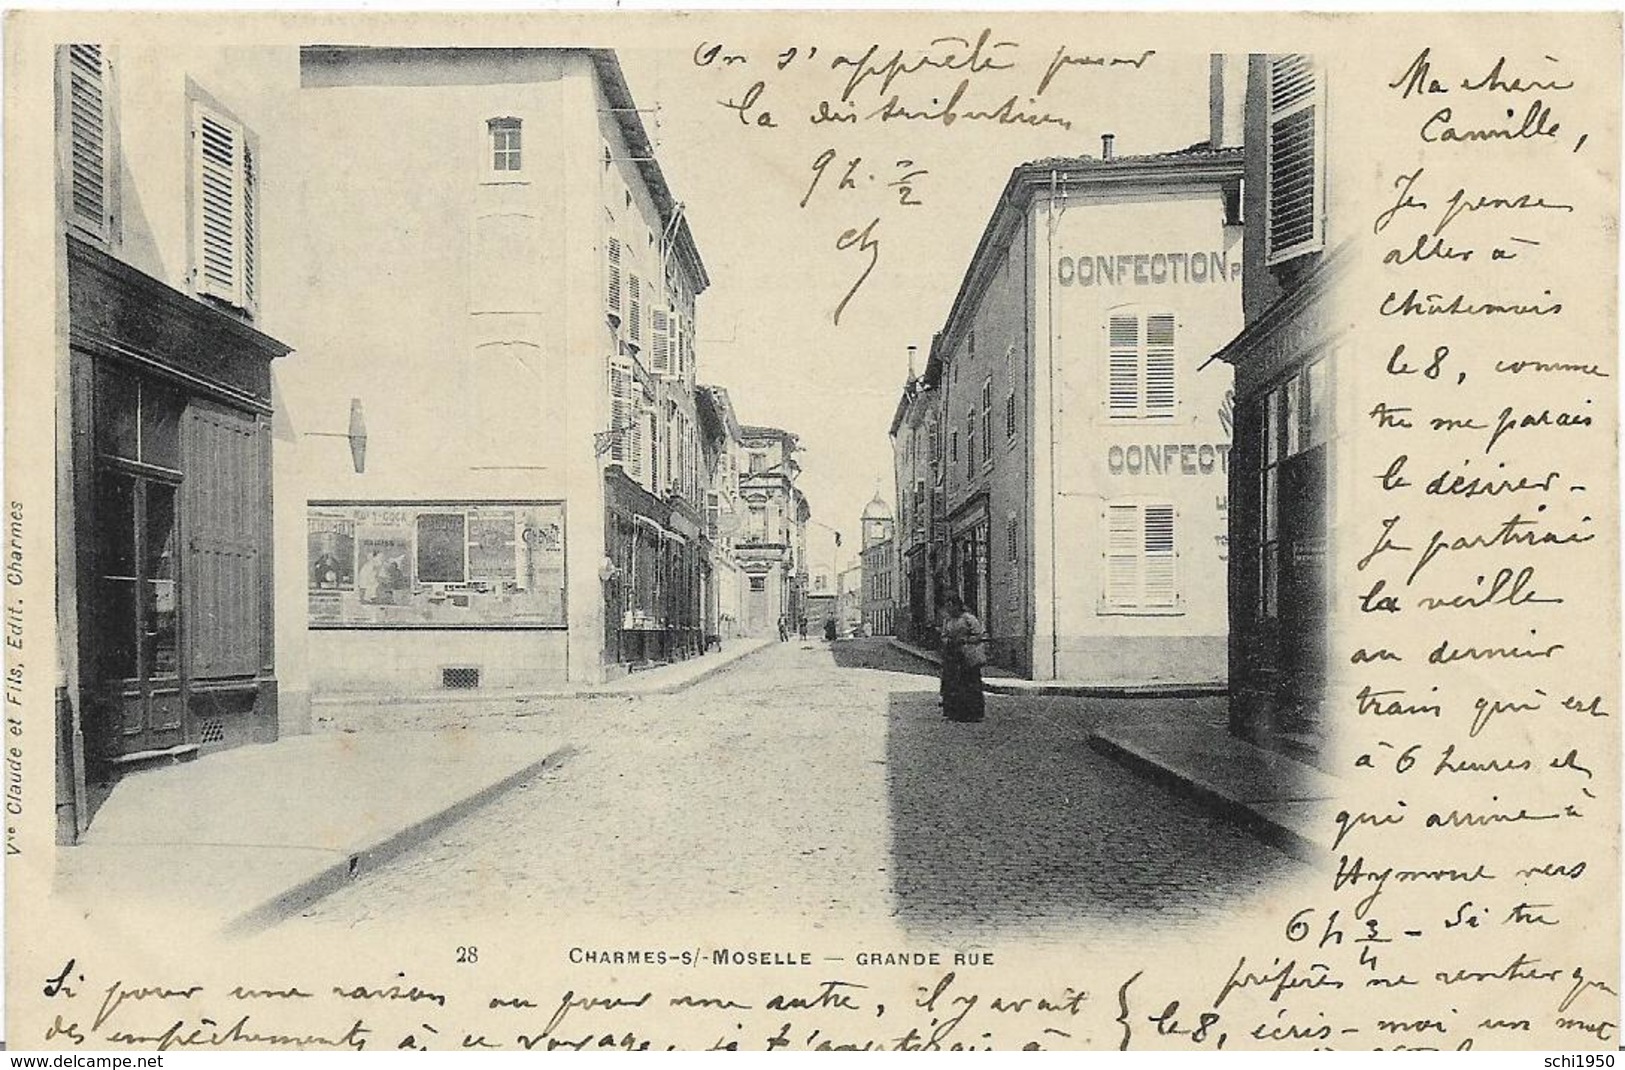 On s'apprête pour
la distribution
9 h. 1/2
Ma chère
Camille,
Je pense
aller à
Châtenois
le 8, comme
tu me parais
le désirer -
Je partirai
la veille
au dernier
train qui est
à 6 heures et
qui arrive à
Aymone vers
6 h 3/4 - Si tu
préfères ne rentrer que
le 8, écris-moi un mot
CONFECTION P
CONFECT
COCA
Vve Claude et Fils, Edit. Charmes
28 CHARMES-S/-MOSELLE — GRANDE RUE
Si pour une raison ou pour une autre, il y avait
des empêchements à ce voyage, je t'avertirais à
delcampe.net
schi1950